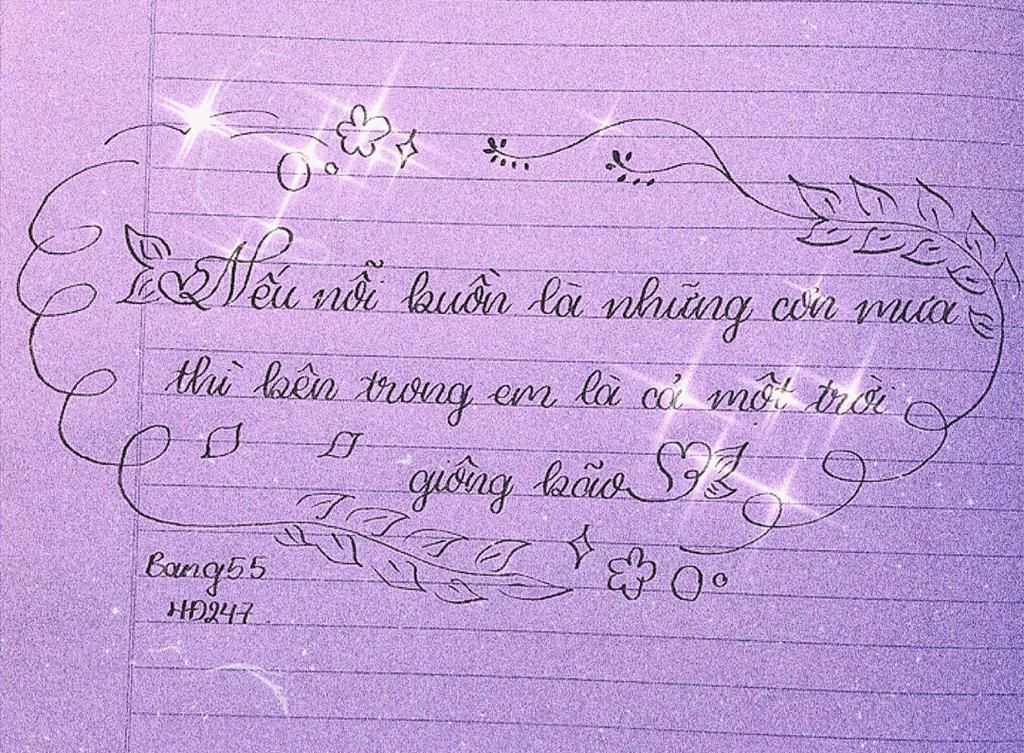 Nếu nỗi buồn là những cơn mưa
thì bên trong em là cả một trời
giông bão
Bang55
HĐ247